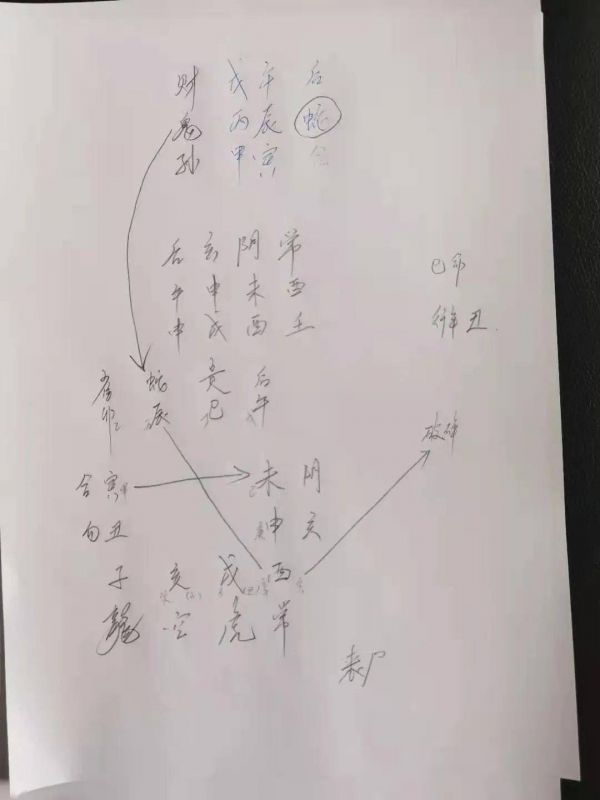 财 戊午 后
鬼 丙辰 蛇
孙 甲寅 合
后 玄 阴 常
午 申 未 酉
申 戌 酉 壬
巳命
行年丑
雀 蛇 贵 后
卯 辰 巳 午
破碎
合 寅 未 阴
勾 丑 申 玄
子 亥 戌 酉
龍 空 虎 常